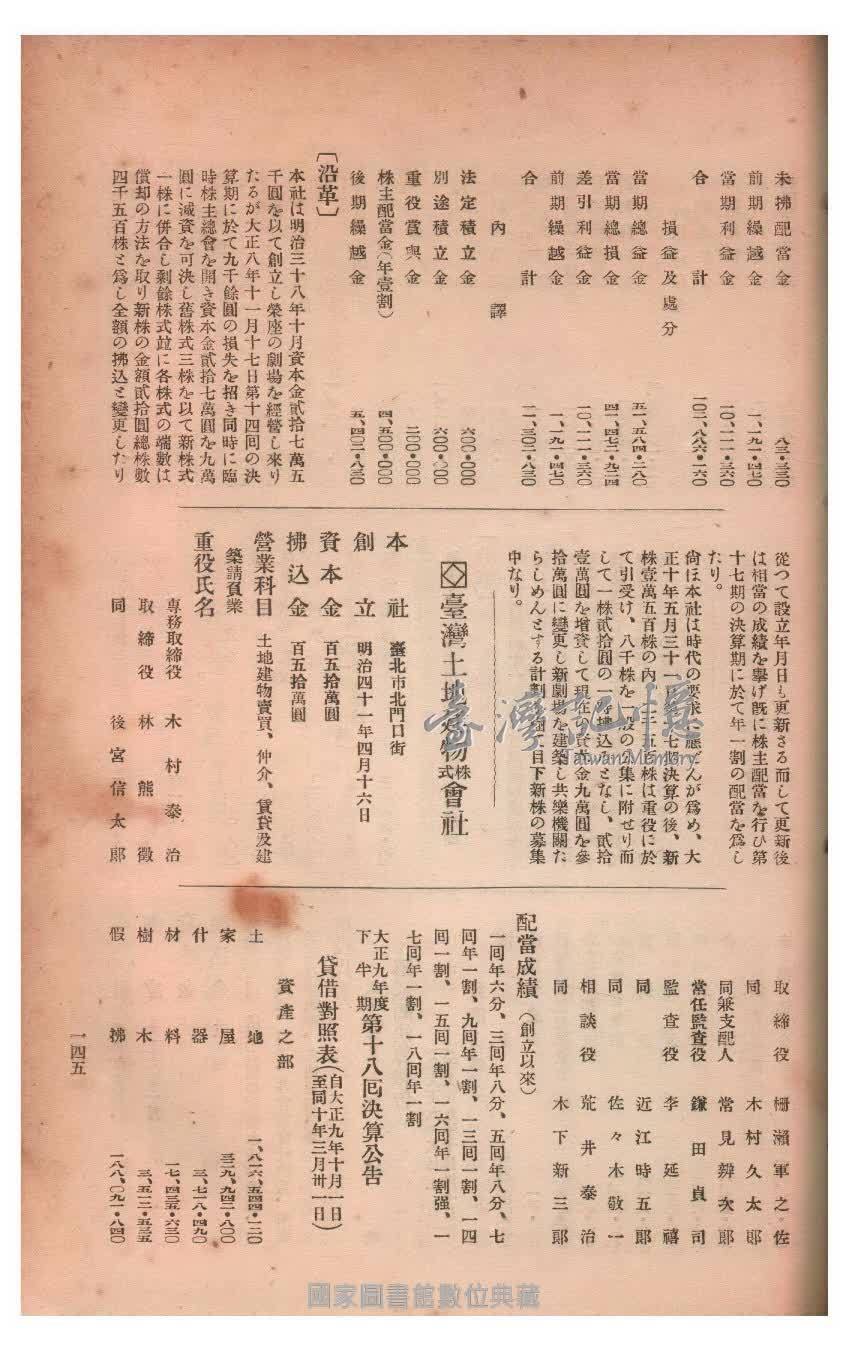 未拂配當金 八三・三三〇
前期繰越金 一、一九一・四七〇
當期利益金 一〇、一一一・三六〇
合計 一〇二、八八六・一六〇
損益及處分
當期總益金 五一、五八四・二八〇
當期總損金 四一、四七二・九二四
差引利益金 一〇、一一一・三六〇
前期繰越金 一、一九一・四七〇
合計 一一、三〇二・八三〇
內譯
法定積立金 六〇〇・〇〇〇
別途積立金 六〇〇・〇〇〇
重役賞與金 二〇〇・〇〇〇
株主配當金(年壹割) 四、五〇〇・〇〇〇
後期繰越金 五、四〇二・八三〇
〔沿革〕
本社は明治三十八年十月資本金貳拾七萬五
千圓を以て創立し榮座の劇場を經營し來り
たるが大正八年十一月十七日第十四回の決
算期に於て九千餘圓の損失を招き同時に臨
時株主總會を開き資本金貳拾七萬圓を九萬
圓に減資を可決し舊株式三株を以て新株式
一株に併合し剩餘株式竝に各株式の端數は
償却の方法を取り新株の金額貳拾圓總株數
四千五百株と爲し全額の拂込と變更したり
從つて設立年月日も更新さる而して更新後
は相當の成績を擧げ旣に株主配當を行ひ第
十七期の決算期に於て年一割の配當を爲し
たり。
尙ほ本社は時代の要求に應ぜんが爲め、大
正十年五月三十一日第十七期決算の後、新
株壹萬五百株の內二千五百株は重役に於
て引受け、八千株を一般の公集に附せり而
して一株貳拾圓の一時拂込みとなし、貳拾
壹萬圓を增資して現在の資本金九萬圓を參
拾萬圓に變更し新劇場を建築し共樂機關た
らしめんとする計劃 目下新株の募集
中なり。
臺灣土地建物株式會社
本社 臺北市北門口街
創立 明治四十一年四月十六日
資本金 百五拾萬圓
拂込金 百五拾萬圓
營業科目 土地建物賣買、仲介、賃貸及建
築請負業
重役氏名
專務取締役 木村泰治
取締役 林熊徵
同 後宮信太郎
取締役 柵瀨軍之佐
同 木村久太郎
同兼支配人 常見辨次郎
常任監査役 鎌田貞司
監査役 李延禧
同 近江時五郎
同 佐々木敬一
相談役 荒井泰治
同 木下新三郎
配當成績(創立以來)
一回年六分、三回年八分、五回年八分、七
回年一割、九回年一割、一三回一割、一四
回一割、一五回一割、一六回年一割强、一
七回年一割、一八回年一割
大正九年度下半期第十八回決算公告
貸借對照表(自大正九年十月一日至同十年三月卅一日)
資產之部
土地 一、八一六、五四四・一二〇
家屋 三二九、九四二・八〇〇
什器 三、七一八・四九〇
材料 一七、四三五・六三〇
樹木 三、五一二・五三五
假拂 一八八、〇九一・八四〇
一四五
臺灣記憶
Taiwan Memory
國家圖書館數位典藏